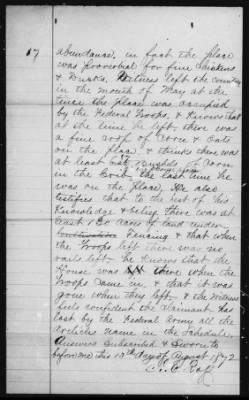 17
abundance, in fact the place
was proverbial for fine Chickens
& Ducks. Witness left the country
in the month of May at the
time the place was occupied
by the Federal Troops, & Knows that
at the time he left, there was
a fine crop of Corn & Oats
on the place & thinks there was
at least Bushels of Corn
in the Crib, the last time he
was on the place, He also
testifies that to the best of his
Knowledge & belief there was at
least acres of land under
Fencing & that when
the Troops left there was no
rails left. he Knows that the
House was there when the
Troops came in, & that it was
gone when they left, & the Witness
feels confident the Claimant has
lost by the Federal Army all the
Articles name in the Schedule.
Answers Subscribed & Sworn to
before me this 10th day of August 1872